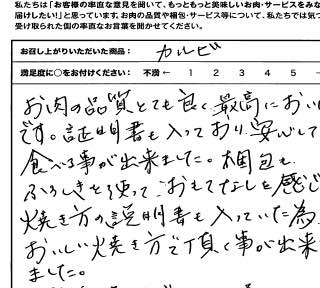 私たちは「お客様の率直な意見を聞いて、もっともっと美味しいお肉・サービスをみな
届けしたい！」と思っています。お肉の品質や梱包・サービス等について、私たちでは気づ
受け取られた側の率直なお言葉を聞かせてください。
お召し上がりいただいた商品： カルビ
満足度に○をお付けください： 不満 ← 1 2 3 4 5 →
お肉の品質とても良く最高においし
です。証明書も入っており安心して
食べる事が出来ました。梱包も
ふろしきを使って、おもてなしを感じ
焼き方の説明書も入っていた為
おいしい焼き方で頂く事が出来
ました。